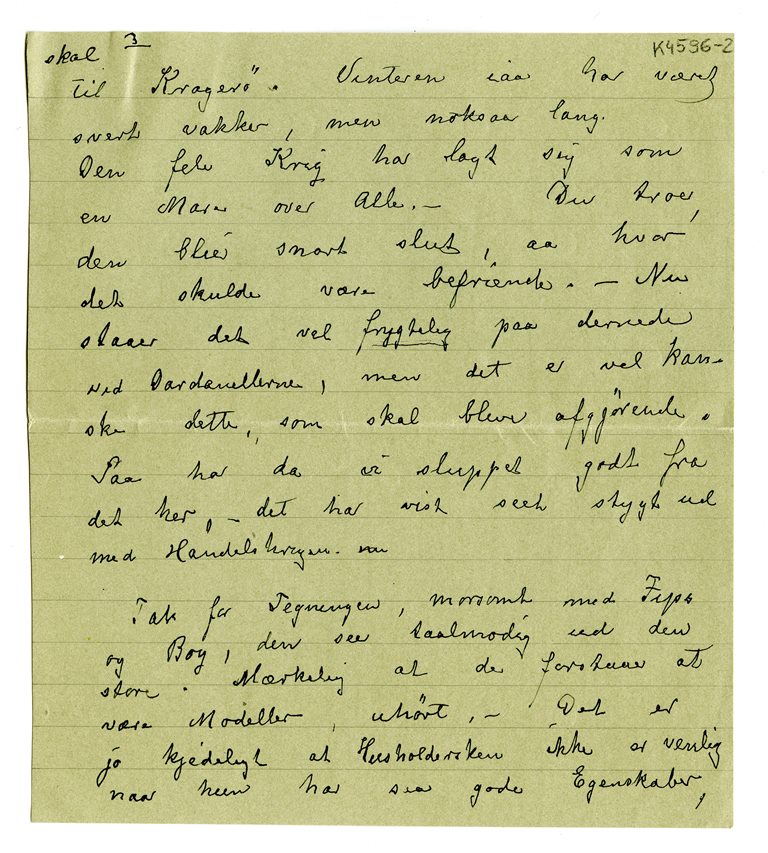 K4596-2
skal 3
til Kragerö. Vinteren iaa har været
svert vakker, men noksaa lang.
Den fele Krig har lagt sig som
en Mare over Alle. – Du troer,
den blier snart slut, aa hvor
det skulde være befriende. – Nu
staaer det vel frygtelig paa dernede
ved Dardanellerne, men det er vel kan-
ske dette, som skal blive afgjörende.
Saa har da vi sluppet godt fra
det her, – det har vist seet stygt ud
med Handelskrigen. nu
Tak for Tegningen, morsomt med Fips
og Boy, den see taalmodig ud den
store. Mærkelig at de forstaae at
være Modeller, uhört, – Det er
jo kjedeligt at Husholdersken ikke er venlig
naar hun har saa gode Egenskaber,